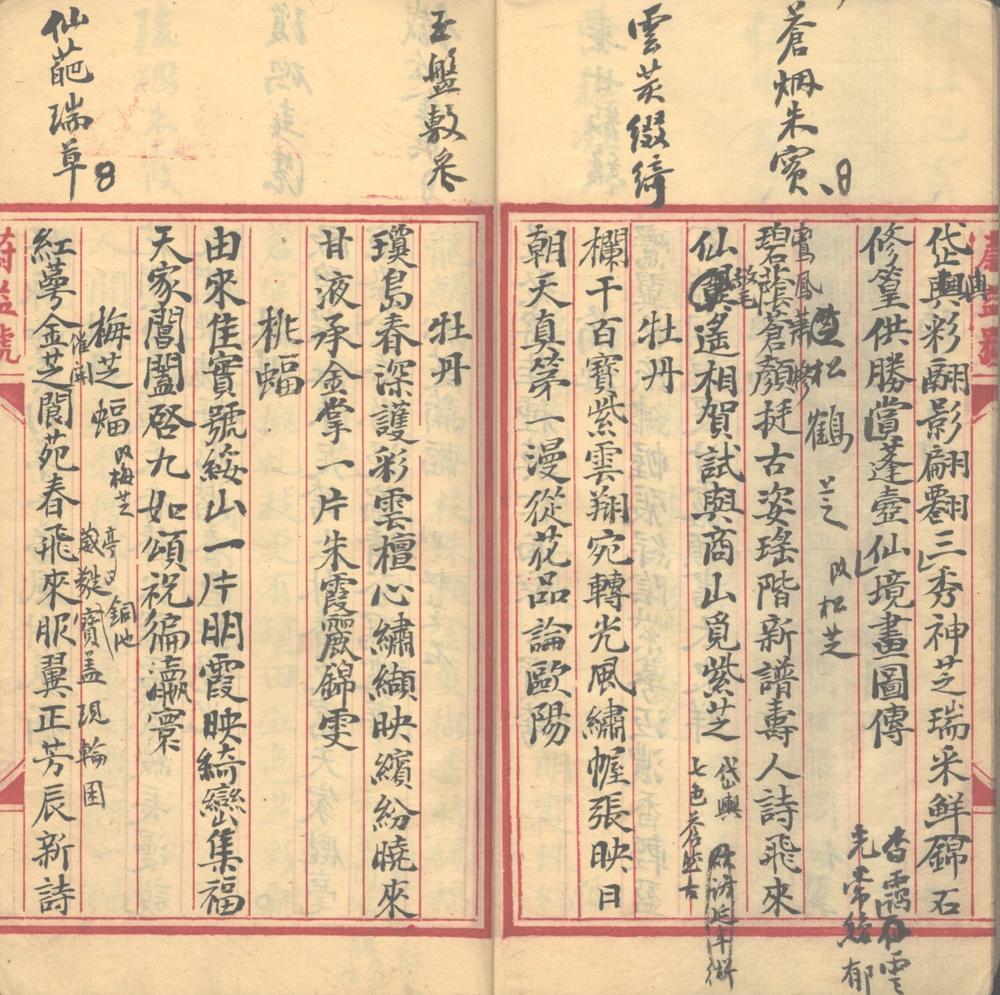 蒼烟朱實
雲英綴綺
岱輿彩翮影翩翻三秀神芝瑞采鮮錦石
修篁供勝賞蓬壺仙境畫圖傳
松鶴
改松芝
鸞鳳
碧蔭蒼顏挺古姿瑤階新譜壽人詩飛來
仙
遙相賀試與商山覓紫芝
岱輿
七色
牡丹
欄干百寶紫雲翔宛轉光風繡幄張映日
朝天真第一漫從花品論歐陽
玉盤敷采
仙葩瑞草
牡丹
瓊島春深護彩雲檀心繡纈映繽紛曉來
甘液承金掌一片朱霞麗錦雯
桃蝠
由來佳實號綏山一片明霞映綺巒集福
天家閶闔啓九如頌祝徧瀛寰
梅芝蝠
改梅芝
催開
寶盖現輪囷
紅萼金芝閬苑春飛來服翼正芳辰新詩